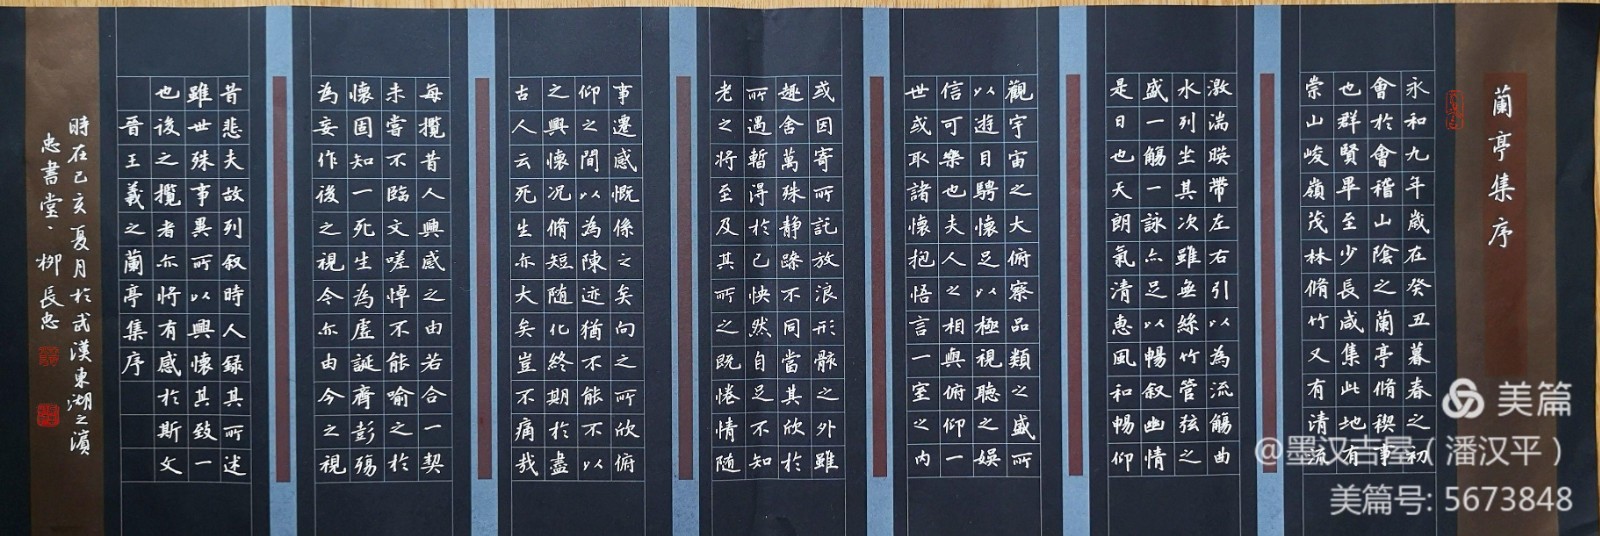 蘭亭集序
永和九年歲在癸丑暮春之初
會於會稽山陰之蘭亭脩稧事
也群賢畢至少長咸集此地有
崇山峻嶺茂林脩竹又有清流
激湍暎帶左右引以為流觴曲
水列坐其次雖無絲竹管弦之
盛一觴一詠亦足以暢叙幽情
是日也天朗氣清惠風和暢仰
觀宇宙之大俯察品類之盛所
以遊目騁懷足以極視聽之娛
信可樂也夫人之相與俯仰一
世或取諸懷抱悟言一室之內
或因寄所託放浪形骸之外雖
趣舍萬殊静躁不同當其欣於
所遇暫得於己快然自足不知
老之將至及其所之既惓情隨
事遷感慨係之矣向之所欣俯
仰之間以為陳迹猶不能不以
之興懷况脩短隨化終期於盡
古人云死生亦大矣豈不痛哉
每攬昔人興感之由若合一契
未嘗不臨文嗟悼不能喻之於
懷固知一死生為虛誕齊彭殤
為妄作後之視今亦由今之視
昔悲夫故列叙時人録其所述
雖世殊事異所以興懷其致一
也後之攬者亦將有感於斯文
晉王羲之蘭亭集序
時在己亥夏月於武漢東湖之濵
忠書堂、柳長忠
美篇
@墨汉吉屋（潘汉平）
美篇号: 5673848